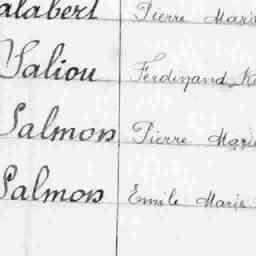 alabert Pierre Marie
Saliou Ferdinand
Salmon Pierre Marie
Salmon Emile Marie